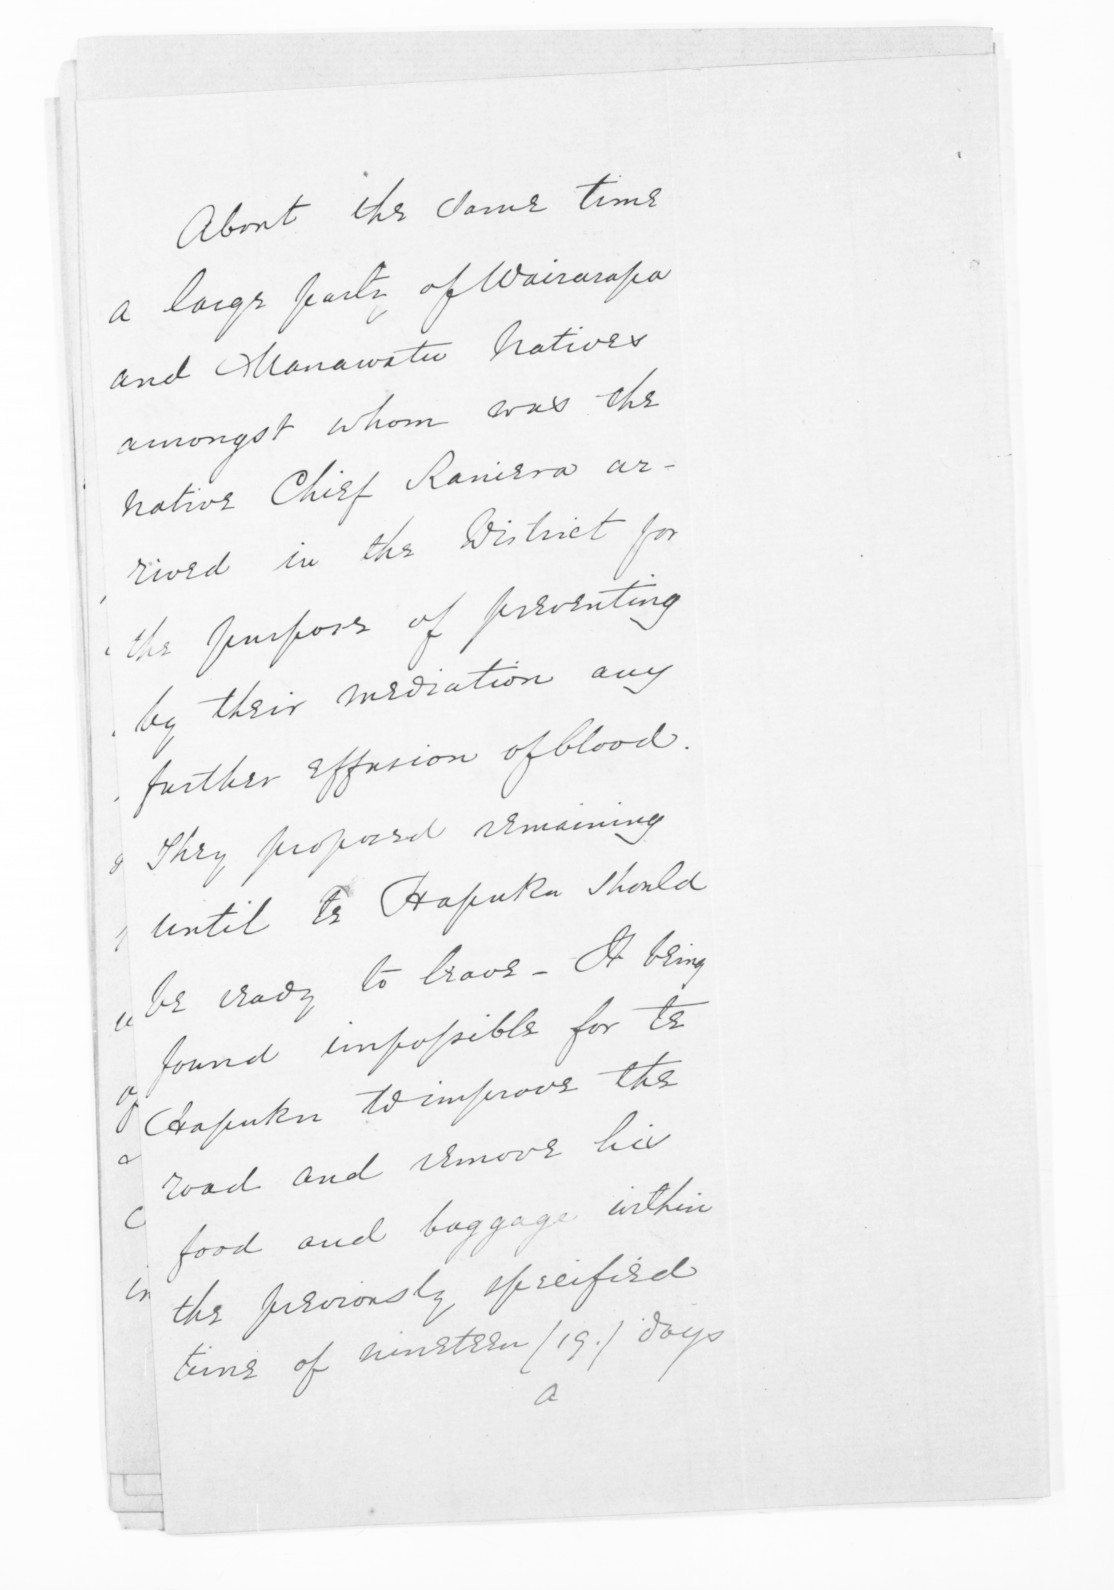 About the same time
a large party of Wairarapa
and Manawatu Natives
amongst whom was the
Native Chief Raniera ar-
rived in the District for
the purpose of preventing
by their mediation any
further effusion of blood.
They proposed remaining
until Te Hapuku should
be ready to leave - It being
found impossible for Te
Hapuku to improve the
road and remove his
food and baggage within
the previously specified
time of nineteen (19.) days
a